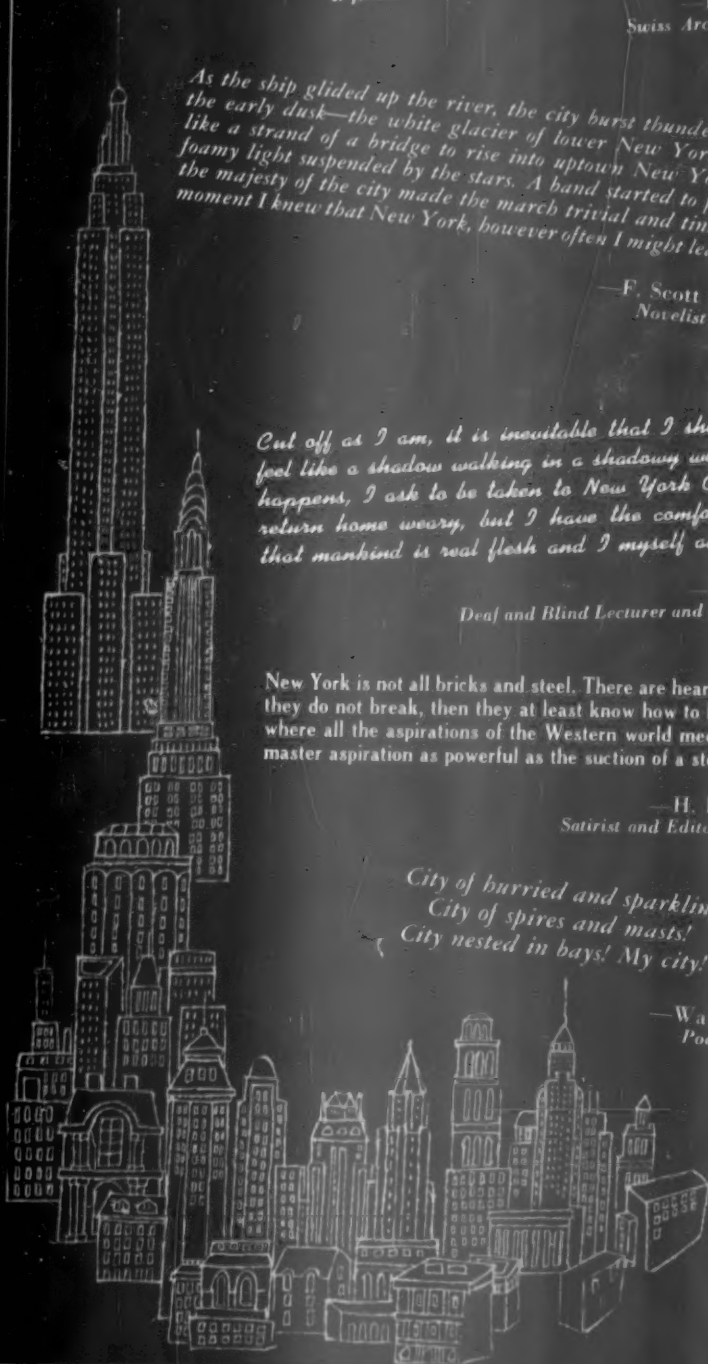 Swiss Arc
As the ship glided up the river, the city burst thunde
the early dusk—the white glacier of lower New Yor
like a strand of a bridge to rise into uptown New Y
foamy light suspended by the stars. A band started to
the majesty of the city made the march trivial and tin
moment I knew that New York, however often I might lea
—F. Scott
Novelist
Cut off as I am, it is inevitable that I sh
feel like a shadow walking in a shadowy w
happens, I ask to be taken to New York C
return home weary, but I have the comfo
that mankind is real flesh and I myself a
Deaf and Blind Lecturer and
New York is not all bricks and steel. There are hear
they do not break, then they at least know how to
where all the aspirations of the Western world mee
master aspiration as powerful as the suction of a st
—H.
Satirist and Edito
City of hurried and sparklin
City of spires and masts!
City nested in bays! My city!
—Wa
Poe